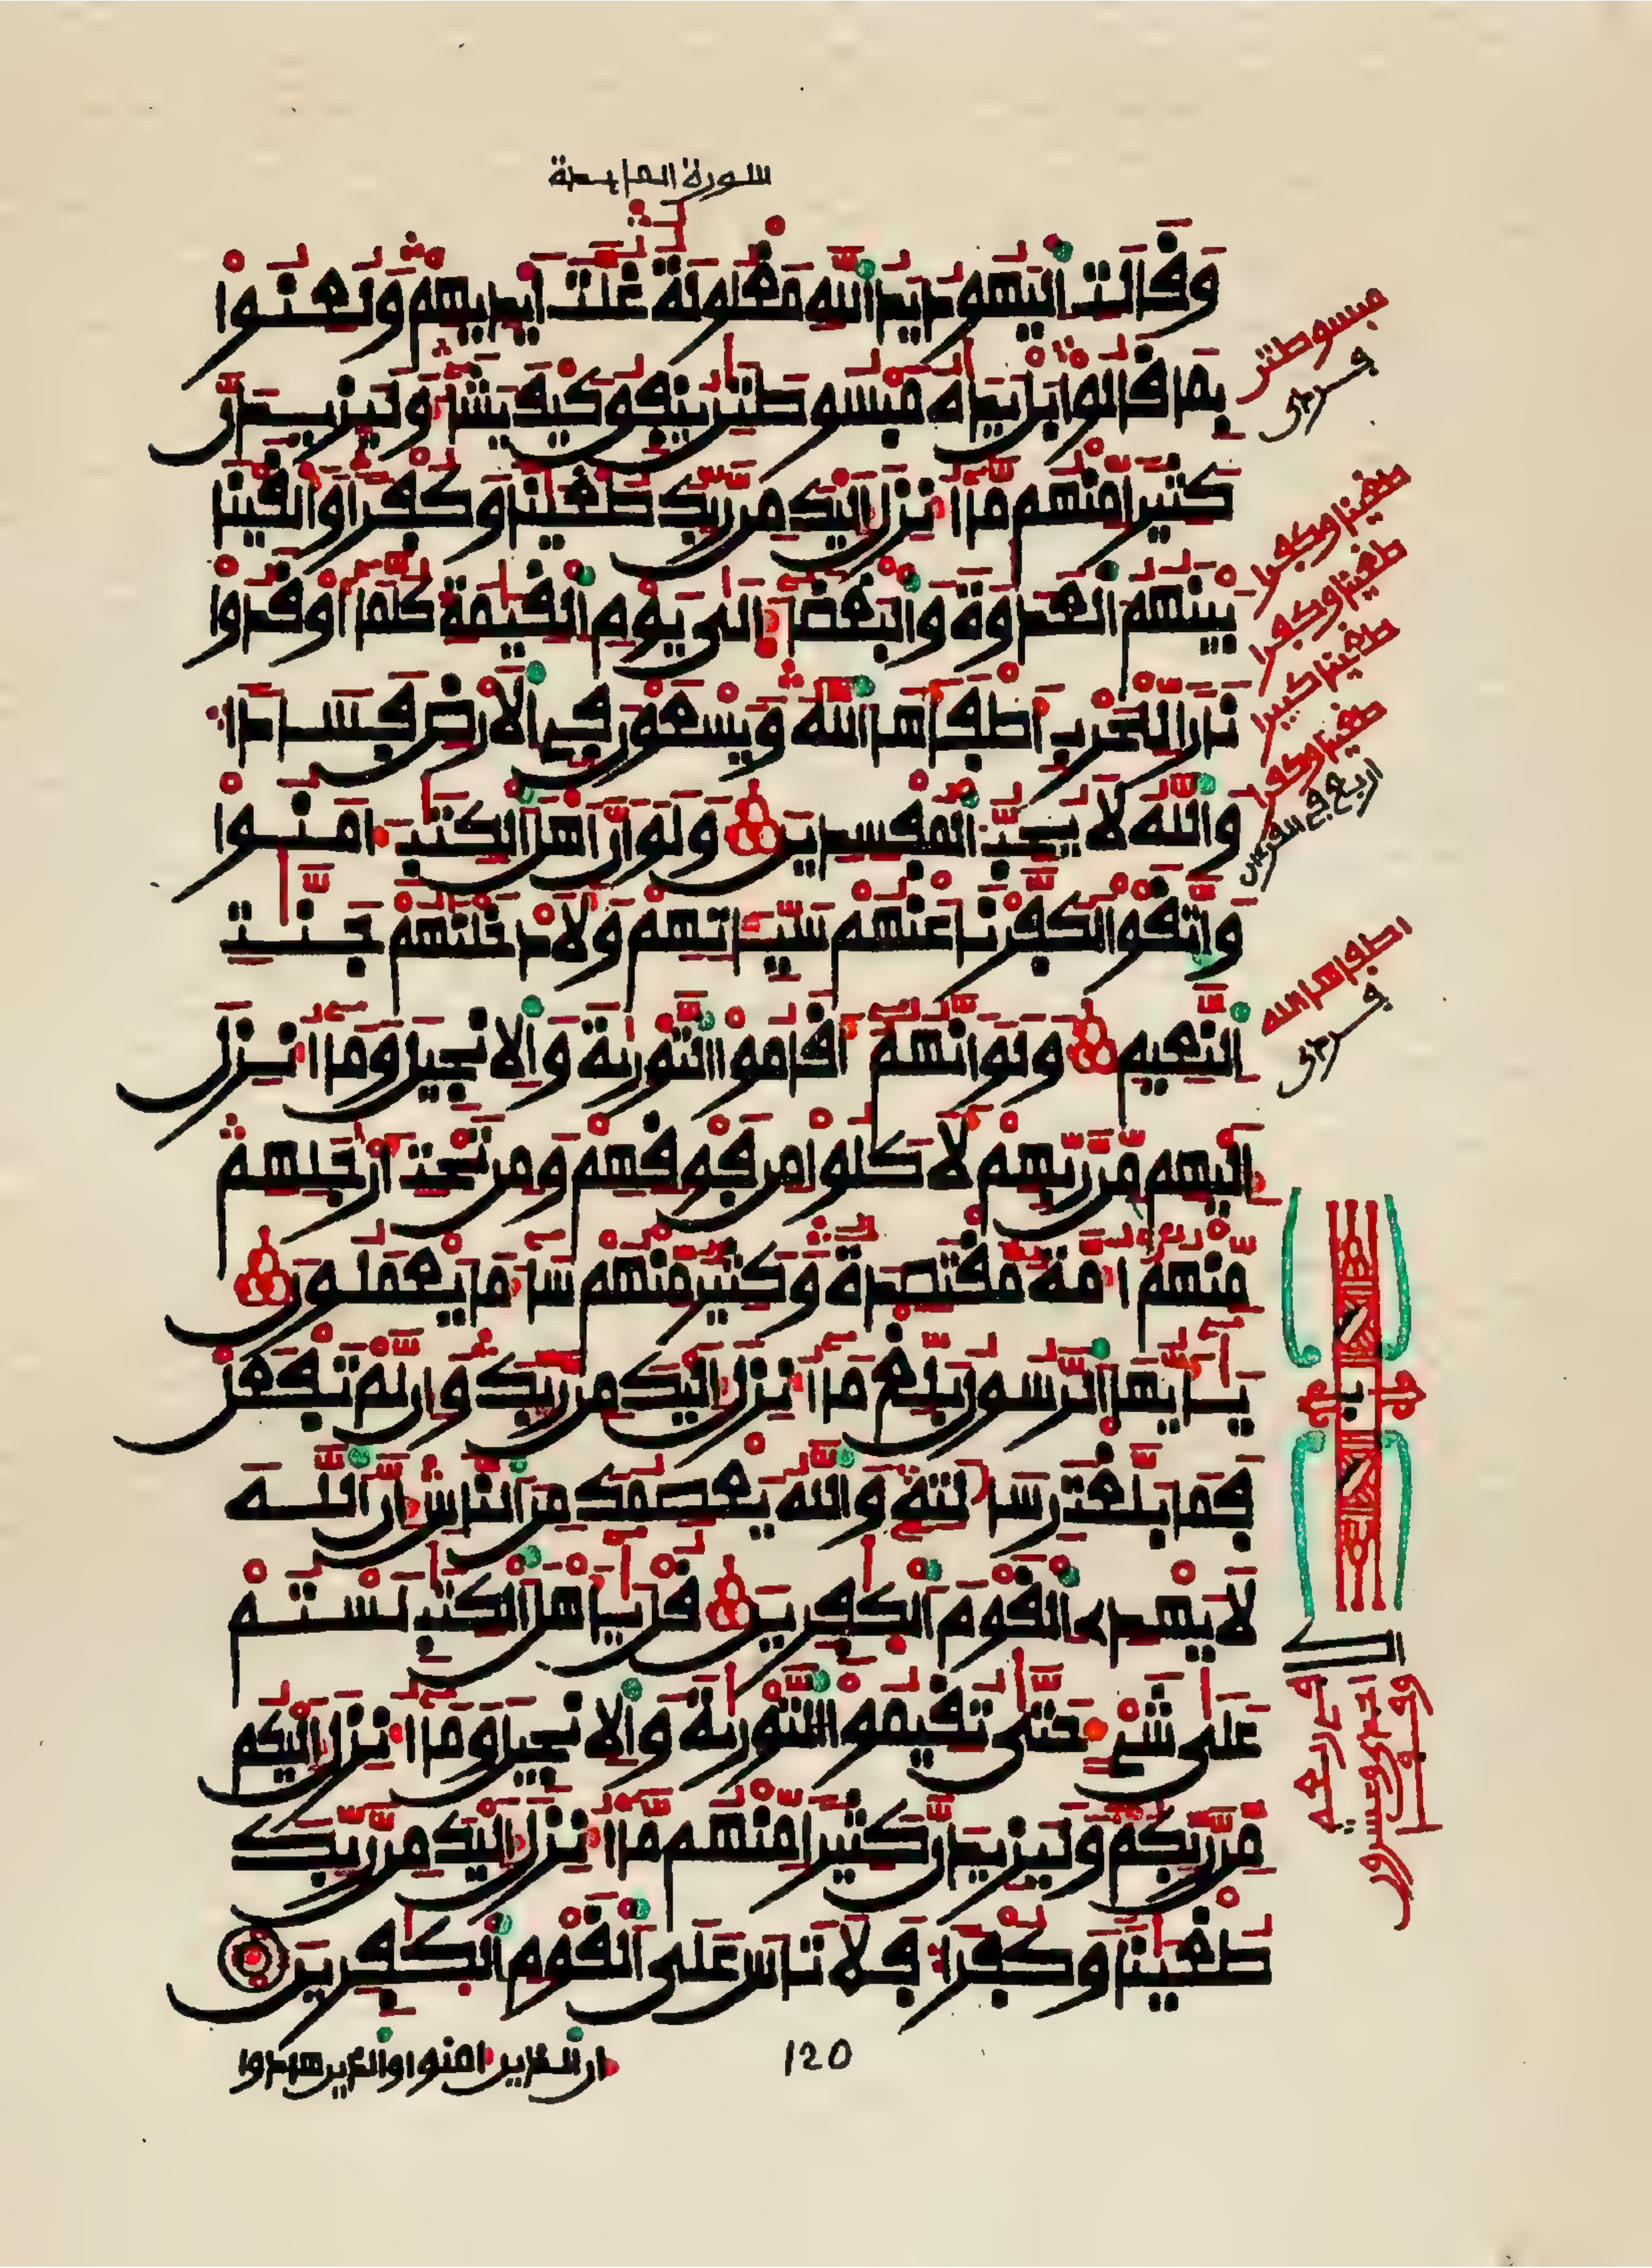 سورة المايدة
وقالت اليهود يد الله مغلولة غلت ايديهم ولعنوا
بما قالوا بل يداه مبسوطتن ينفق كيف يشا وليزيدن
كثيرا منهم ما انزل اليك من ربك طغينا وكفرا والقينا
بينهم العدوة والبغضا الى يوم القيمة كلما اوقدوا
نارا للحرب اطفاها الله ويسعون في الارض فسادا
والله لا يحب المفسدين ولو ان اهل الكتب امنوا
واتقوا لكفرنا عنهم سيـاتهم ولادخلنهم جنت
النعيم ولو انهم اقاموا التورية والانجيل وما انزل
اليهم من ربهم لاكلوا من فوقهم ومن تحت ارجلهم
منهم امة مقتصدة وكثير منهم سا ما يعملون
يايها الرسول بلغ ما انزل اليك من ربك وان لم تفعل
فما بلغت رسالته والله يعصمك من الناس ان الله
لا يهدى القوم الكفرين قل ياهل الكتب لستم
على شى حتى تقيموا التورية والانجيل وما انزل اليكم
من ربكم وليزيدن كثيرا منهم ما انزل اليك من ربك
طغينا وكفرا فلا تاس على القوم الكفرين
ان الذين امنوا والذين هادوا
120
مبسوطتن
طغينا وكفرا
طغينا وكفرا
طغينا كبيرا
طغينا وكفرا
اربع في القران
اطفاها الله